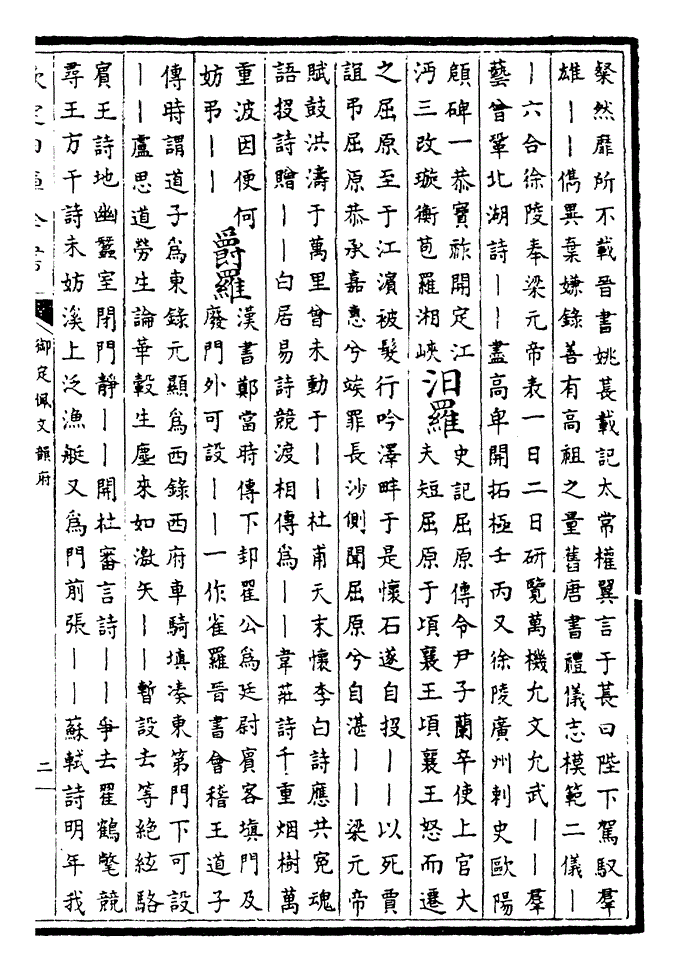 粲然靡所不載晉書姚萇載記太常權翼言于萇曰陛下駕馭羣
雄——儁異棄嫌錄善有高祖之量舊唐書禮儀志模範二儀—
—六合徐陵奉梁元帝表一日二日研覽萬機允文允武——羣
藝曾鞏北湖詩——盡高卑開拓極壬丙又徐陵廣州刺史歐陽
頠碑一恭寶祚開定江
沔三改璇衡苞羅湘峽
汨羅
史記屈原傳令尹子蘭卒使上官大
夫短屈原于頃襄王頃襄王怒而遷
之屈原至于江濱被髮行吟澤畔于是懷石遂自投——以死賈
誼弔屈原恭承嘉惠兮竢罪長沙側聞屈原兮自湛——梁元帝
賦鼓洪濤于萬里曾未動于——杜甫天末懷李白詩應共冤魂
語投詩贈——白居易詩競渡相傳為——韋莊詩千重烟樹萬
重波因便何
妨弔——
爵羅
漢書鄭當時傳下邽翟公為廷尉賓客填門及
廢門外可設——一作雀羅晉書會稽王道子
傳時謂道子為東錄元顯為西錄西府車騎填湊東第門下可設
——盧思道勞生論華轂生塵來如激矢——暫設去等絶絃駱
賓王詩地幽蠶室閉門靜——開杜審言詩——爭去翟鶴氅競
尋王方干詩未妨溪上泛漁艇又為門前張——蘇軾詩明年我
欽定四庫全書
御定佩文韻府
二